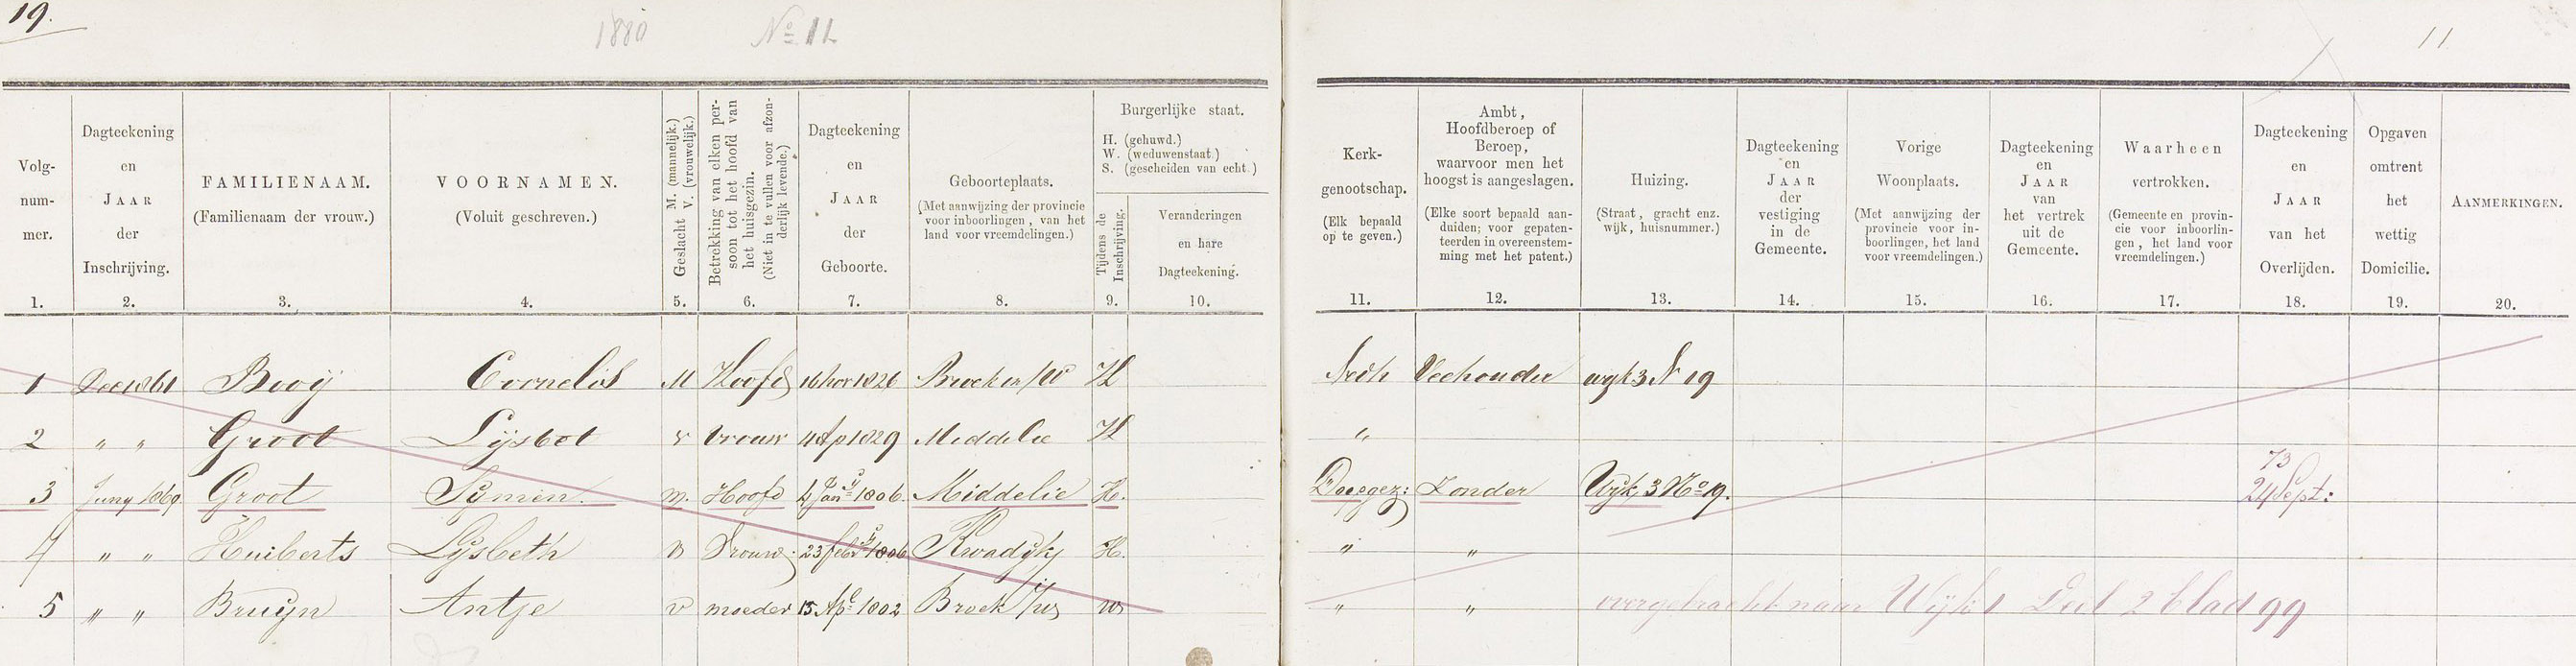 19.
1880 No 11
11
Volg-
num-
mer.
1.
Dagteekening
en
JAAR
der
Inschrijving.
2.
FAMILIENAAM.
(Familienaam der vrouw.)
3.
VOORNAMEN.
(Voluit geschreven.)
4.
Geslacht M. (mannelijk.)
V. (vrouwelijk.)
5.
Betrekking van elken per-
soon tot het hoofd van
het huisgezin.
(Niet in te vullen voor afzon-
derlijk levende.)
6.
Dagteekening
en
JAAR
der
Geboorte.
7.
Geboorteplaats.
(Met aanwijzing der provincie
voor inboorlingen, van het
land voor vreemdelingen.)
8.
Burgerlijke staat.
H. (gehuwd.)
W. (weduwenstaat.)
S. (gescheiden van echt.)
Tijdens de
Inschrijving.
9.
Veranderingen
en hare
Dagteekening.
10.
Kerk-
genootschap.
(Elk bepaald
op te geven.)
11.
Ambt,
Hoofdberoep of
Beroep,
waarvoor men het
hoogst is aangeslagen.
(Elke soort bepaald aan-
duiden; voor gepaten-
teerden in overeenstem-
ming met het patent.)
12.
Huizing.
(Straat, gracht enz.
wijk, huisnummer.)
13.
Dagteekening
en
JAAR
der
vestiging
in de
Gemeente.
14.
Vorige
Woonplaats.
(Met aanwijzing der
provincie voor in-
boorlingen, het land
voor vreemdelingen.)
15.
Dagteekening
en
JAAR
van
het vertrek
uit de
Gemeente.
16.
Waarheen
vertrokken.
(Gemeente en provin-
cie voor inboorlin-
gen, het land voor
vreemdelingen.)
17.
Dagteekening
en
JAAR
van het
Overlijden.
18.
Opgaven
omtrent
het
wettig
Domicilie.
19.
AANMERKINGEN.
20.
1 Dec 1861 Booij Cornelis M Hoofd 16 nov 1826 Broek in /W H Nedh Veehouder wyk 3 N 19
2 " " Groot Lijsbet v vrouw 4 Ap 1829 Middelie H "
3 Juny 1869. Groot Symen. m. Hoofd 4 Jany 1806. Middelie H. Doopsgez: Zonder Wyk 3 No 19. 73 24 Sept:
4 " " Huiberts Lysbeth v Vrouw. 23 febry 1806 Kwadyk H. " "
5 " " Bruijn Antje v moeder 15 Apl 1802 Broek i/w w " " overgebracht naar Wijk 1 Deel 2 blad 99